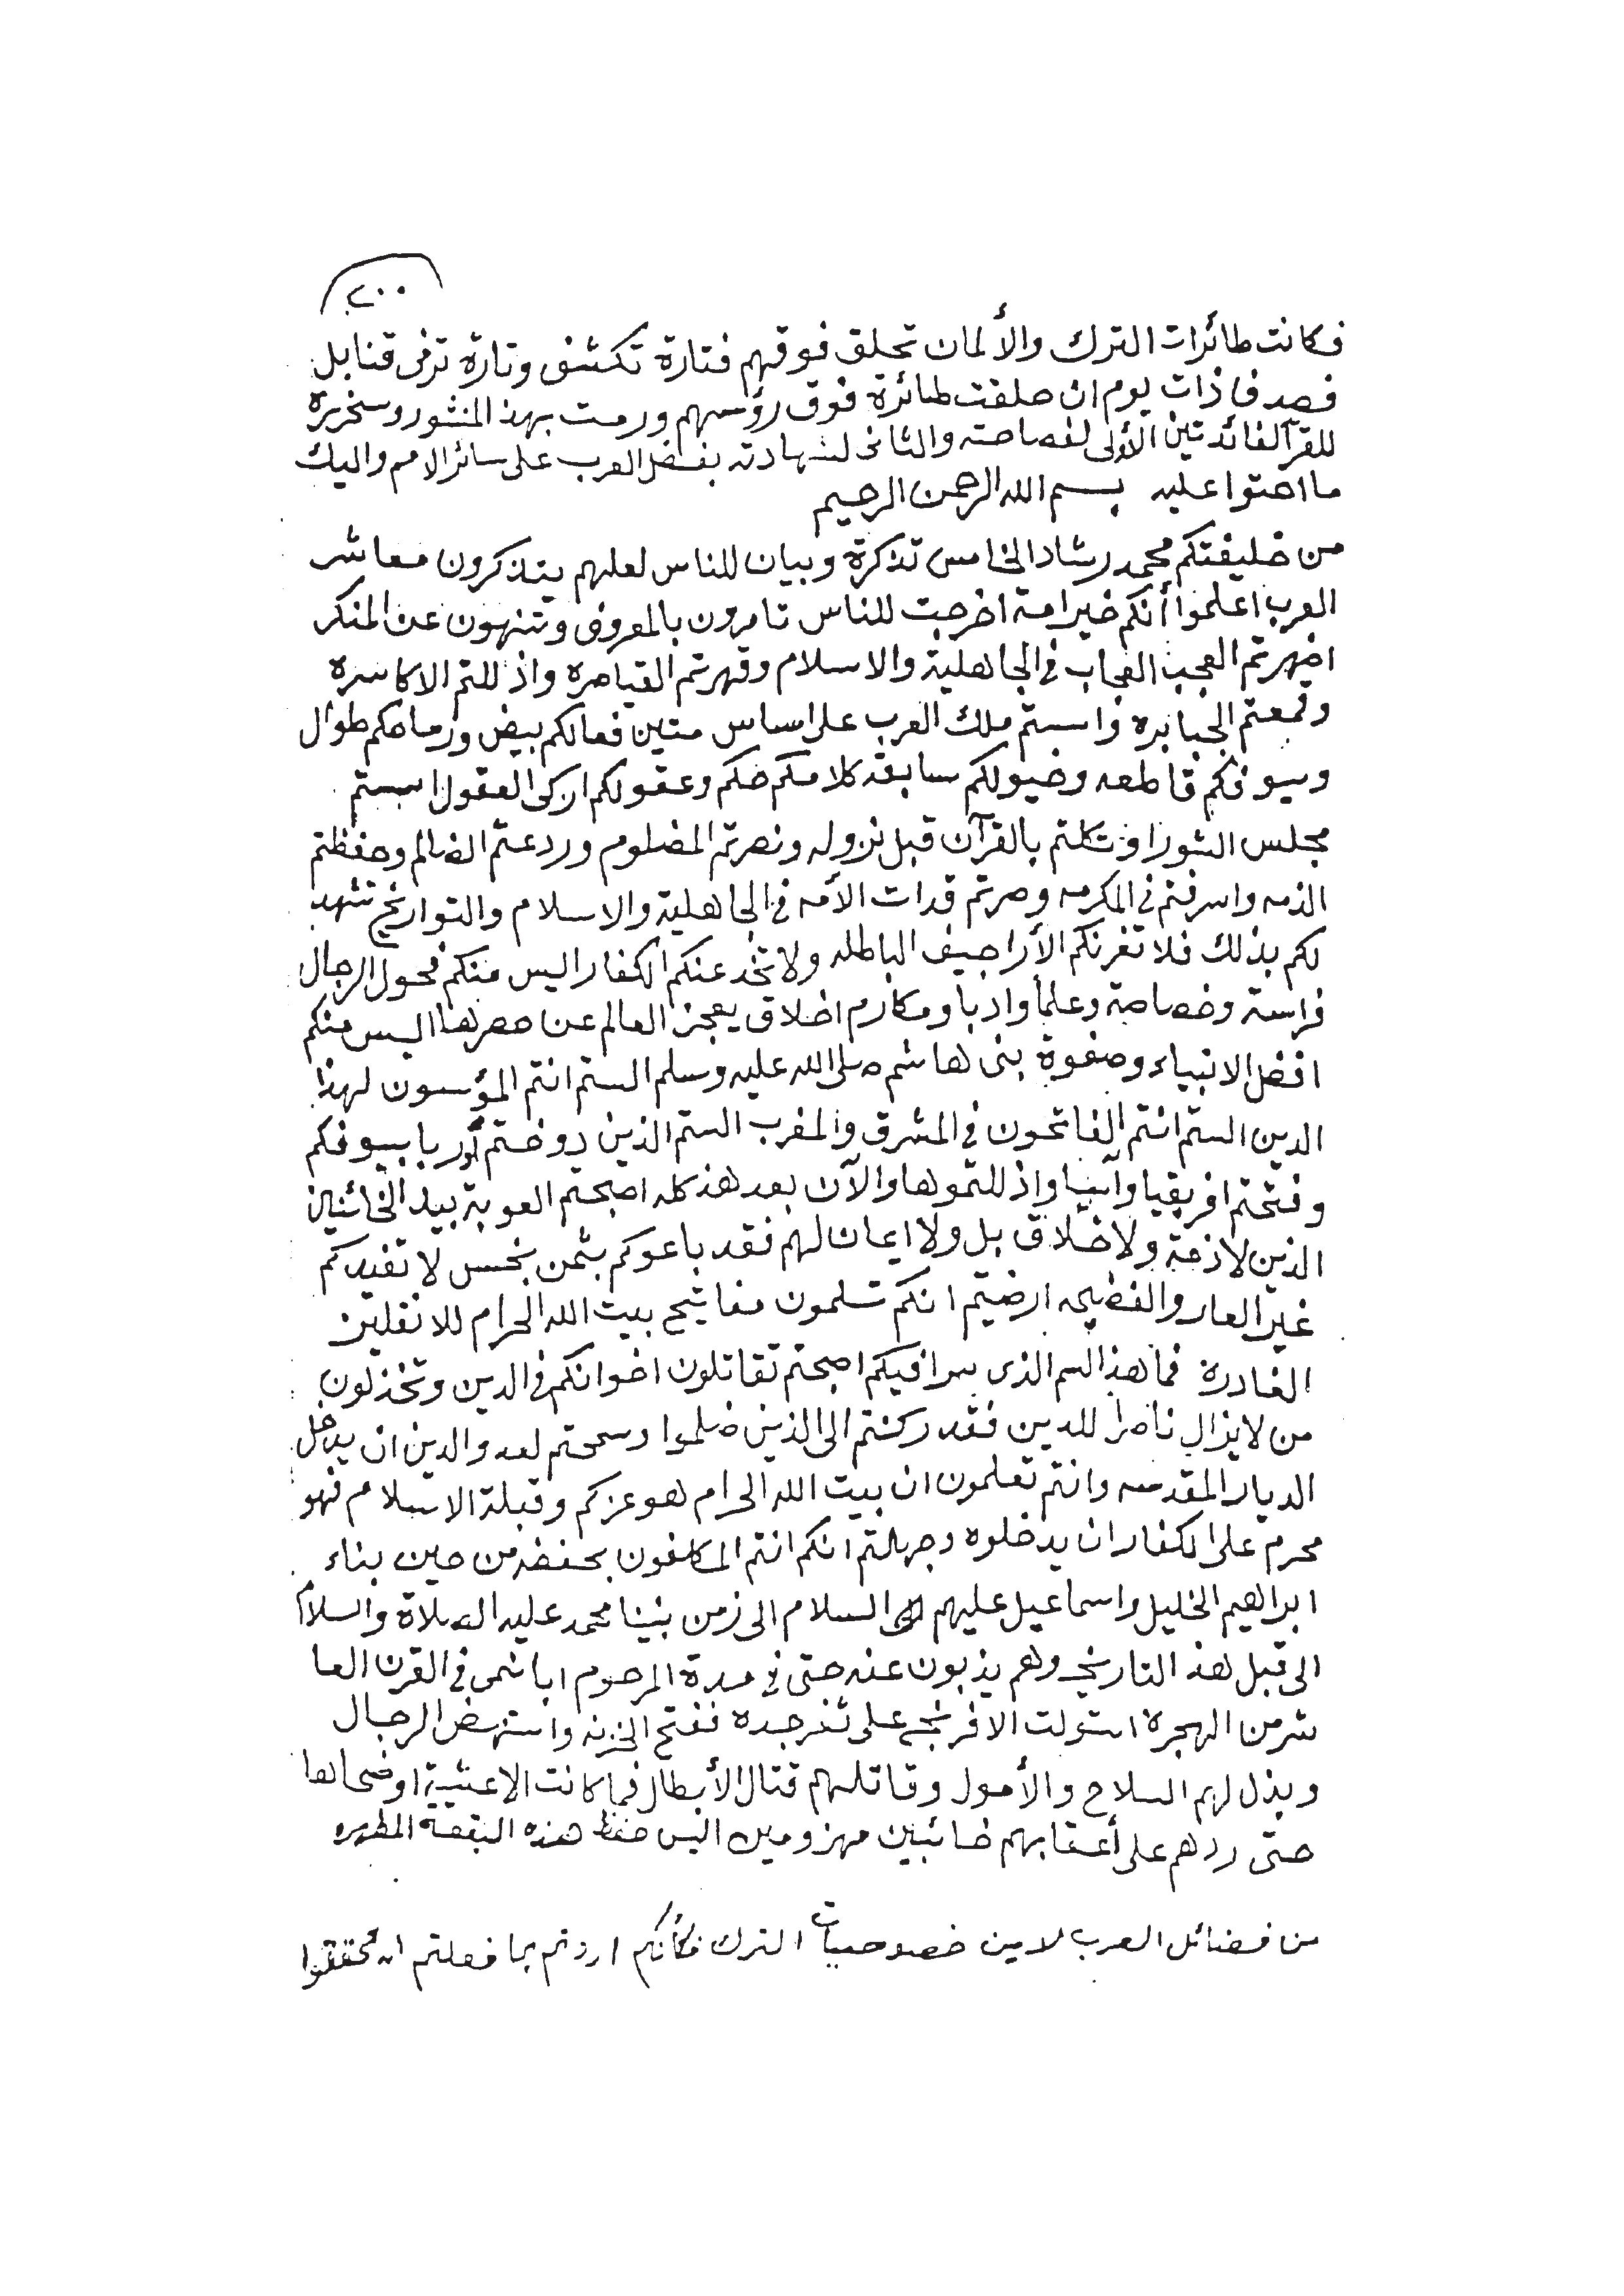 ٢٠٠
فكانت طائرات الترك والألمان تحلق فوقهم فتارة تكشف وتارة ترمى قنابل
فصدف ذات يوم ان حلقت طائرة فوق رؤسهم ورمت بهذ المنشور وسنحرره
للقرآ لفائدتين الأولى لفصاحته والثانى لشهادته بفضل العرب على سائر الامم واليك
ما احتوا عليه بسم الله الرحمن الرحيم
من خليفتكم محمد رشاد الخامس تذكرة وبيان للناس لعلهم يتذكرون معاشر
العرب اعلموا أنكم خير امة اخرجت للناس تامرون بالمعروف وتنهون عن المنكر
اضهرتم العجب العجاب في الجاهلية والاسلام وقهرتم القياصره واذللتم الاكاسره
وقمعتم الجبابره واسستم ملك العرب على اساس متين فعالكم بيض ورماحكم طوال
وسيوفكم قاطعه وخيولكم سابقه كلامكم حكم وعقولكم ازكى العقول اسستم
مجلس الشورا وتكلتم بالقرآن قبل نزوله ونصرتم المضلوم وردعتم الضالم وحفظتم
الذمه واسرفتم في المكرمه وصرتم قدات الأمه في الجاهلية والاسلام والتواريخ تشهد
لكم بذلك فلا تغرنكم الأراجيف الباطله ولا تخدعنكم الكفار اليس منكم فحول الرجال
فراسة وفصاحة وعلماً وادباً ومكارم اخلاق يعجز العالم عن حصرها اليس منكم
افضل الانبياء وصفوة بنى هاشم صلى الله عليه وسلم الستم انتم المؤسسون لهذا
الدين الستم انتم الفاتحون في المشرق والمغرب الستم الذين دوختم أوربا بسيوفكم
وفتحتم افريقيا وآسيا واذللتموها والآن بعد هذ كله اصبحتم العوبة بيد الخائنين
الذين لاذمة ولاخلاق بل ولا ايمان لهم فقد باعوكم بثمن بخس لا تفيدكم
غير العار والفضيحه ارضيتم انكم تسلمون مفاتيح بيت الله الحرام للانقليز
الغادرة فما هذ السم الذى سرا فيكم اصبحتم تقاتلون اخوانكم في الدين وتخذلون
من لايزال ناصراً للدين فقد ركنتم الى الذين ضلموا وسمحتم لعدو الدين ان يدخل
الديار المقدسه وانتم تعلمون ان بيت الله الحرام هو عزكم وقبلة الاسلام فهو
محرم على الكفار ان يدخلوه وجهلتم انكم انتم المكلفون بحفضه من حين بناء
ابراهيم الخليل واسماعيل عليهم السلام الى زمن نبينا محمد عليه الصلاة والسلام
الى قبل هذ التاريخ وهم يذبون عنه حتى في مدة المرحوم ابا نمى في القرن العا
شر من الهجرة استولت الافرنج على ثغر جده ففتح الخزنه واستنهض الرجال
وبذل لهم السلاح والأمول وقاتلهم قتال الأبطال فما كانت الا عشية او ضحاها
حتى ردهم على أعقابهم خائبين مهزومين اليس حفظ هذه البقعة المطهره
من فضائل العرب لا من خصوصيات الترك فكأنكم اردتم بما فعلتم ان تحققوا